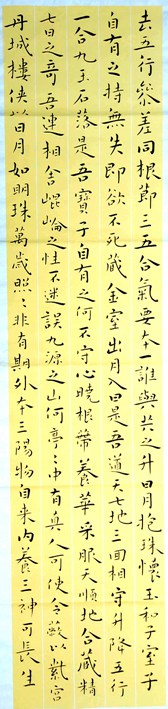 去五行參差同根節三五合氣要本一誰與共之升日月抱珠懷玉和子室子
自有之持無失即欲不死藏金室出月入日是吾道天七地三回相守升降五行
一合九玉石落是吾寶子自有之何不守心曉根蒂養華采服天順地合藏精
七日之奇吾連相舍崐崘之性不迷誤九源之山何亭〻中有真人可使令蔽以紫宮
丹城樓俠以日月如明珠萬歲照〻非有期外本三陽物自来内養三神可長生